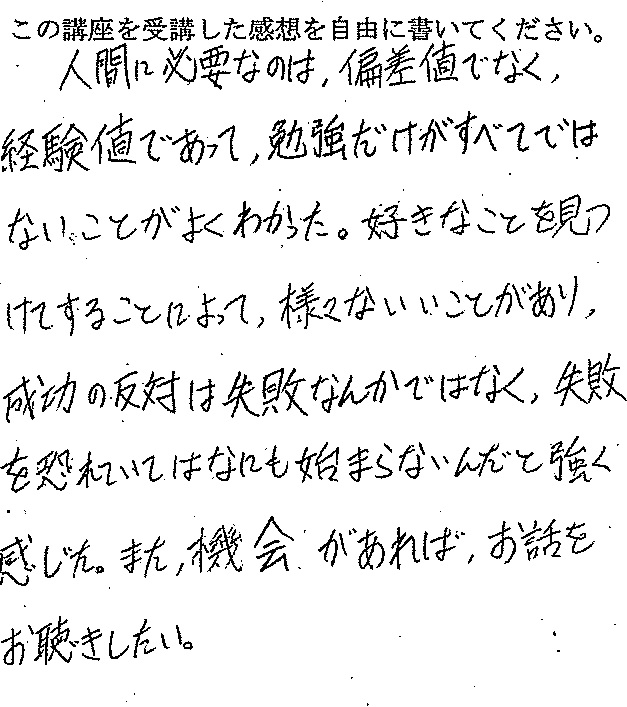 この講座を受講した感想を自由に書いてください。
人間に必要なのは,偏差値でなく,
経験値であって,勉強だけがすべてでは
ないことがよくわかった。好きなことを見つ
けてすることによって,様々ないいことがあり,
成功の反対は失敗なんかではなく,失敗
を恐れていてはなにも始まらないんだと強く
感じた。また,機会があれば,お話を
お聴きしたい。